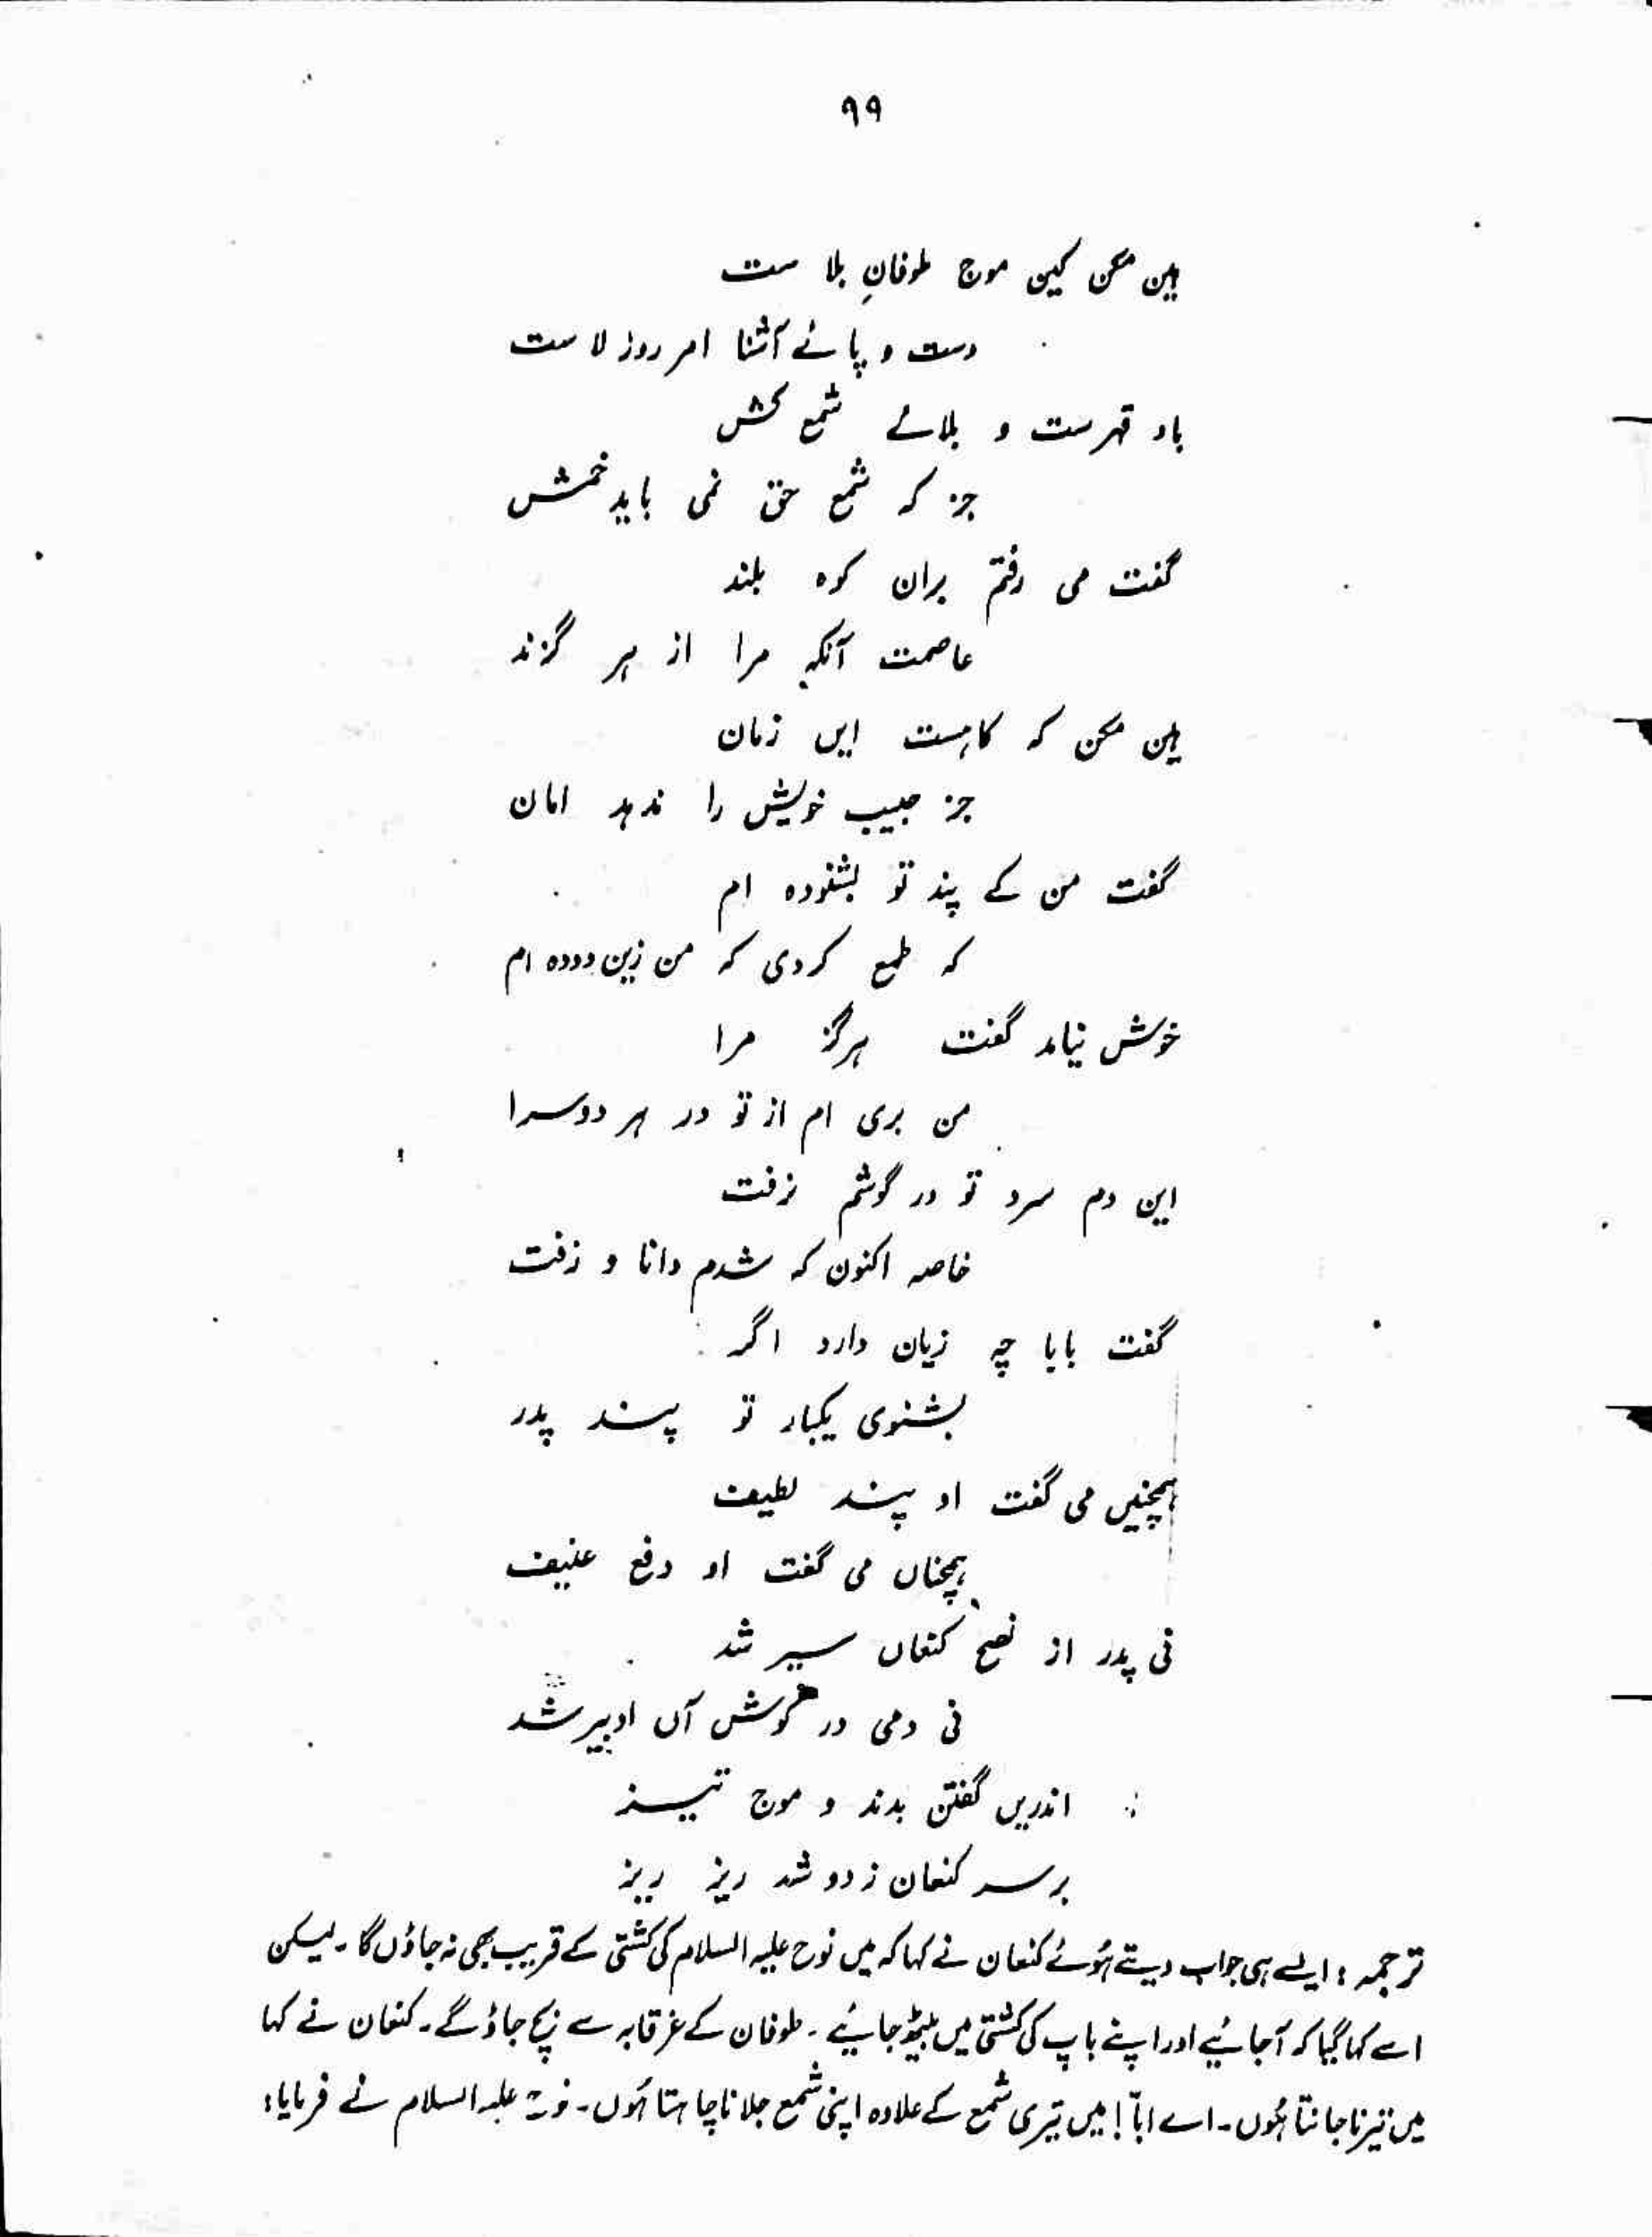 ۹۹
ہین مکن کین موج طوفانِ بلا ست
دست و پائے آشنا امر روز لا ست
باد قہرست و بلائے شمع کش
جز کہ شمع حق نمی باید خمش
گفت می رفتم بران کوہ بلند
عاصمت آنکہ مرا از ہر گزند
ہین مکن کہ کاہست ایں زمان
جز حبیب خویش را ندہد امان
گفت من کے پند تو بشنودہ ام
کہ طمع کردی کہ من زین دودہ ام
خوش نیامد گفت ہرگز مرا
من بری ام از تو در ہر دوسرا
این دم سرد تو در گوشم نرفت
خاصہ اکنون کہ شدم دانا و زفت
گفت بابا چہ زیان دارد اگر
بشنوی یکبار تو پند پدر
ہمچنیں می گفت او پند لطیف
ہمچناں می گفت او دفع عنیف
نی پدر از نصح کنعاں سیر شد
نی دمی در گوش آں ادبیر شد
اندریں گفتن بدند و موج تیز
برسر کنعان زدو شد ریز ریز
ترجمہ : ایسے ہی جواب دیتے ہُوئے کنعان نے کہا کہ میں نوح علیہ السلام کی کشتی کے قریب بھی نہ جاؤں گا۔ لیکن
اسے کہا گیا کہ آجائیے اور اپنے باپ کی کشتی میں بیٹھ جائیے۔ طوفان کے غرقابہ سے بچ جاؤ گے۔ کنعان نے کہا
میں تیرنا جانتا ہُوں۔ اے ابّا! میں تیری شمع کے علاوہ اپنی شمع جلانا چاہتا ہُوں۔ نوح علیہ السلام نے فرمایا: